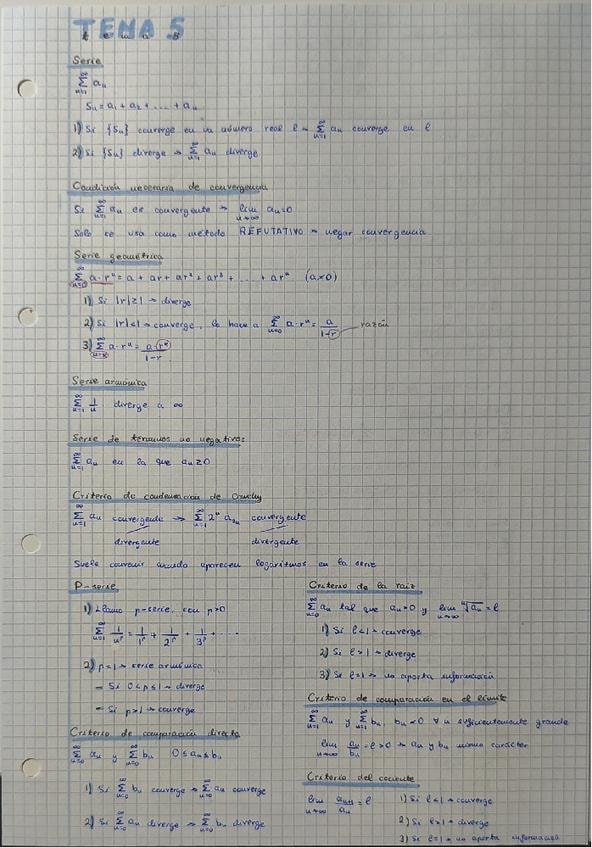 TEMA 5
tema 5
Serie
∑_{n=1}^{∞} aₙ
Sₙ = a₁ + a₂ + .... + aₙ
1) Si {Sₙ} converge en un número real ℓ → ∑_{n=1}^{∞} aₙ converge en ℓ
2) Si {Sₙ} diverge → ∑_{n=1}^{∞} aₙ diverge
Condición necesaria de convergencia
Si ∑_{n=1}^{∞} aₙ es convergente → lim_{n→∞} aₙ = 0
Solo se usa como método REFUTATIVO → negar convergencia
Serie geométrica
∑_{n=0}^{∞} a·rⁿ = a + ar + ar² + ar³ + .... + arⁿ (a≠0)
1) Si |r| ≥ 1 → diverge
2) Si |r| < 1 → converge, lo hace a ∑_{n=0}^{∞} a·rⁿ = a/(1-r) razón
3) ∑_{n=k}^{∞} a·rⁿ = a·rᵏ/(1-r)
Serie armónica
∑_{n=1}^{∞} 1/n diverge a ∞
Serie de términos no negativos
∑_{n=1}^{∞} aₙ en la que aₙ ≥ 0
Criterio de condensación de Cauchy
∑_{n=1}^{∞} aₙ convergente → ∑_{n=1}^{∞} 2ⁿ a_{2ⁿ} convergente
divergente divergente
Suele convenir cuando aparecen logaritmos en la serie
P-serie
1) Llamo p-serie, con p>0
∑_{n=1}^{∞} 1/nᵖ = 1/1ᵖ + 1/2ᵖ + 1/3ᵖ + ....
2) p=1 → serie armónica
- Si 0<p≤1 → diverge
- Si p>1 → converge
Criterio de comparación directa
∑_{n=0}^{∞} aₙ y ∑_{n=0}^{∞} bₙ 0 ≤ aₙ ≤ bₙ
1) Si ∑_{n=0}^{∞} bₙ converge → ∑_{n=0}^{∞} aₙ converge
2) Si ∑_{n=0}^{∞} aₙ diverge → ∑_{n=0}^{∞} bₙ diverge
Criterio de la raíz
∑_{n=0}^{∞} aₙ tal que aₙ>0 y lim_{n→∞} ⁿ√aₙ = ℓ
1) Si ℓ<1 → converge
2) Si ℓ>1 → diverge
3) Si ℓ=1 → no aporta información
Criterio de comparación en el límite
∑_{n=1}^{∞} aₙ y ∑_{n=1}^{∞} bₙ, bₙ ≠ 0 ∀ n suficientemente grande
lim_{n→∞} aₙ/bₙ = ℓ > 0 → aₙ y bₙ mismo carácter
Criterio del cociente
lim_{n→∞} aₙ₊₁/aₙ = ℓ
1) Si ℓ<1 → converge
2) Si ℓ>1 → diverge
3) Si ℓ=1 → no aporta información